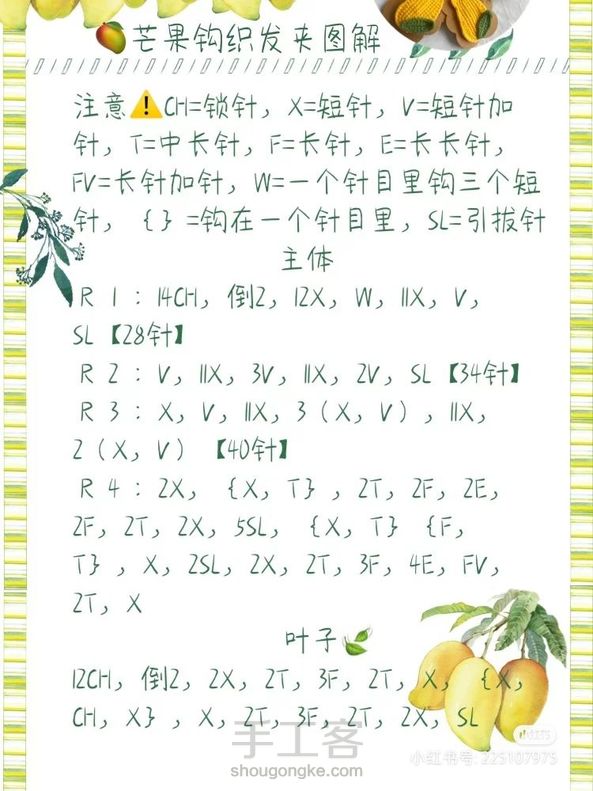 芒果钩织发夹图解
注意⚠️CH=锁针，X=短针，V=短针加
针，T=中长针，F=长针，E=长长针，
FV=长针加针，W=一个针目里钩三个短
针，｛｝=钩在一个针目里，SL=引拔针
主体
R 1：14CH，倒2，12X，W，11X，V，
SL【28针】
R 2：V，11X，3V，11X，2V，SL【34针】
R 3：X，V，11X，3（X，V），11X，
2（X，V）【40针】
R 4：2X，｛X，T｝，2T，2F，2E，
2F，2T，2X，5SL，｛X，T｝｛F，
T｝，X，2SL，2X，2T，3F，4E，FV，
2T，X
叶子
12CH，倒2，2X，2T，3F，2T，X，｛X，
CH，X｝，X，2T，3F，2T，2X，SL
小红书
手工客
小红书号: 225107975
shougongke.com